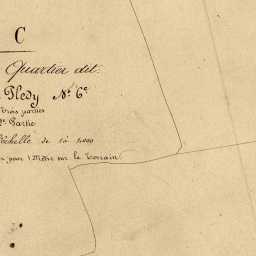 C
Quartier dit:
Pledy N° 6e
trois parties
Partie
Echelle de 1 à 1000
pour 1 Mètre sur le terrain.